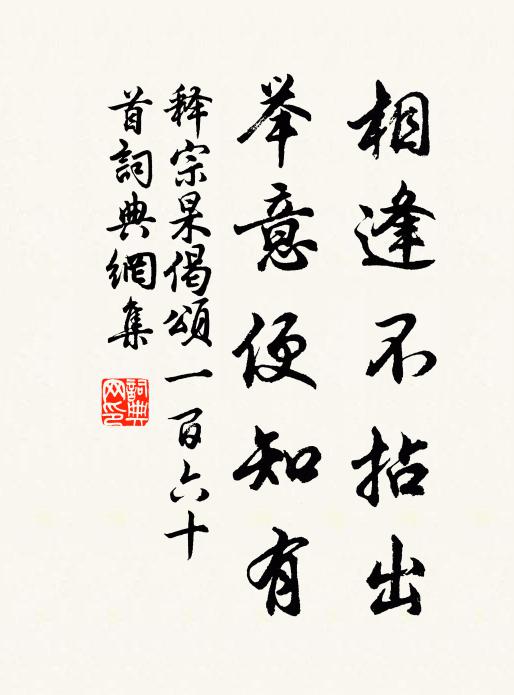 相逢不拈出
举意便知有
释宗杲偈頌一百六十
首詞典網集
詞典
网印